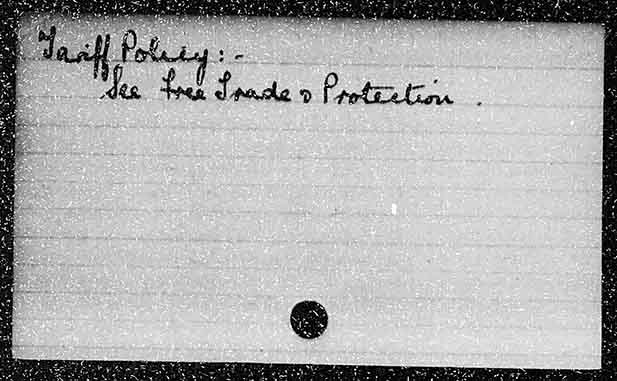 Tariff Policy:-
See Free Trade & Protection.